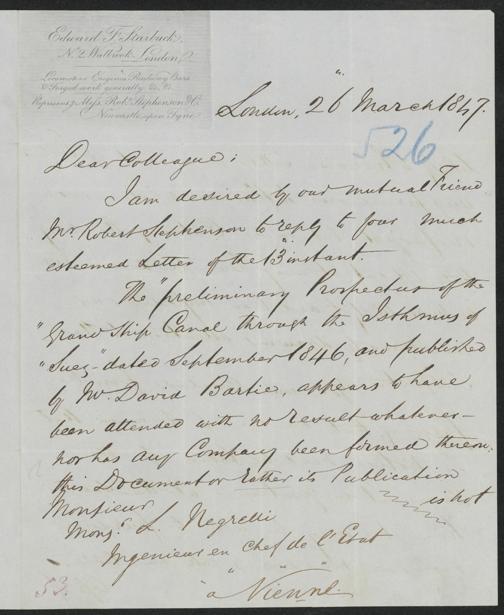 Edward F. Starbuck,
No. 2 Walbrook, London,
Locomotive Engines Railway Bars
& Forged work generally &c. &c.
Represents Messrs. Robt. Stephenson & Co.
Newcastle upon Tyne.
London, 26 March 1847.
526
Dear Colleague;
I am desired by our mutual Friend
Mr. Robert Stephenson to reply to your much
esteemed Letter of the 13 instant.
The "preliminary Prospectus of the
"Grand Ship Canal through the Isthmus of
"Suez" dated September 1846, and published
by Mr. David Bartie, appears to have
been attended with no result whatever –
nor has any Company been formed thereon.
this Document or rather its Publication
is not
Monsieur
Monsr. L. Negrelli
Ingenieur en chef de l'Etat
à Vienne.
53.